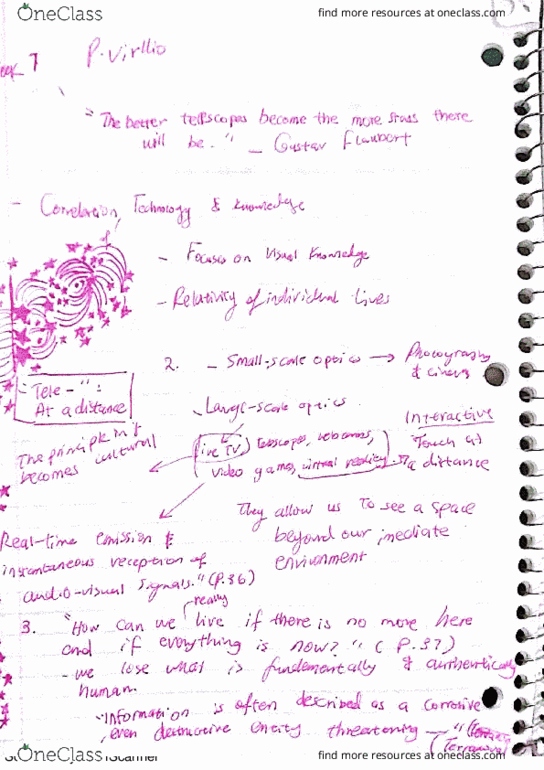 OneClass
find more resources at oneclass.com
7 P. Virllio
"The better telsscopes become the more stras there
will be." - Gustav Flawbert
- Correlation, Technology & knowledge
- Focuses on Visual Knowledge
- Relativity of individual lives
2. - Small-scale optics → Photography
& cinema
"Tele-":
At a distance
- Large-scale optics.
The principle
becomes cultural
live TV, telescopes, webcames,
video games, virtual reality →
Interactive
Touch at
a distance
They allow us to see a space
beyond our imediate
envirnment
Real-time emission &
instantaneous reception of
audio-visual signals." (P.36)
3. "How can we really live if there is no more here
and if everything is now?" (P.37)
- we lose what is fundementally & authentically
human.
"Information is often described as a corrosive
, even destructive entity threatening — "
(Terranova)
OneClass
find more resources at oneclass.com